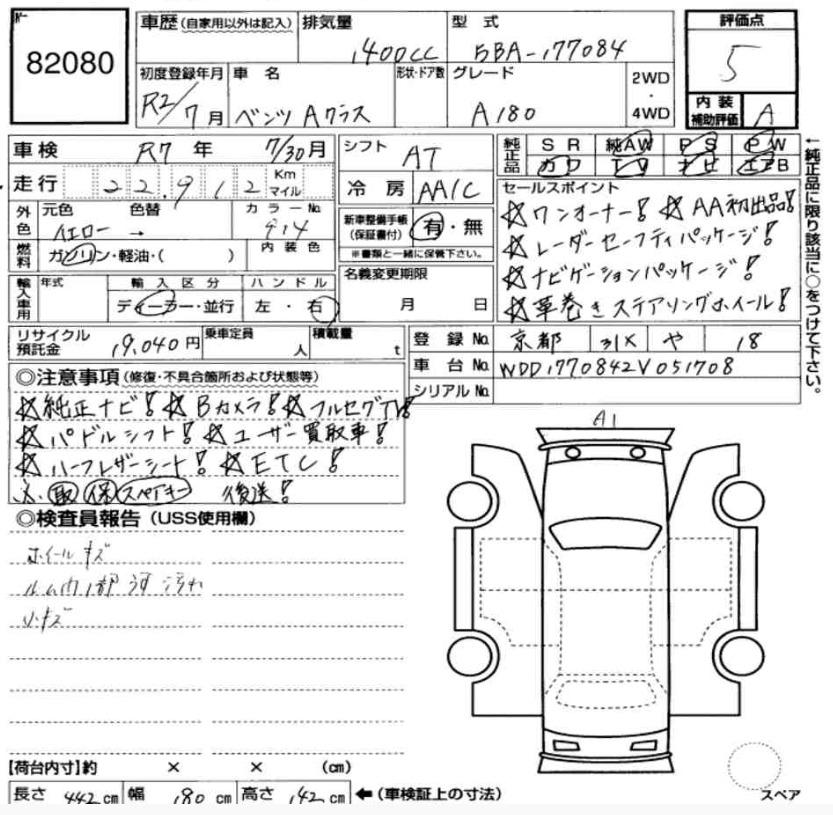 82080
車歴(自家用以外は記入) 排気量 1400cc 型式 5BA-177084
評価点 5
初度登録年月 R2/7月 車名 ベンツ Aクラス 形状・ドア数 グレード A180 2WD・4WD
内装補助評価 A
車検 R7年 7/30月 シフト AT
純正品 SR 純AW PS PW
カワ TV ナビ エアB
走行 22,912 Km マイル 冷房 AA/C
外色 元色 イエロー 色替 → カラーNo. 914
新車整備手帳(保証書付) 有・無
※書類と一緒に保管下さい。
燃料 ガソリン・軽油・( ) 内装色
セールスポイント
☆ワンオーナー! ☆AA初出品!
☆レーダーセーフティパッケージ!
☆ナビゲーションパッケージ!
☆革巻きステアリングホイール!
←純正品に限り該当に○をつけて下さい。
輸入車用 年式 輸入区分 ディーラー・並行 ハンドル 左・右
名義変更期限 月 日
リサイクル預託金 19,040円 乗車定員 人 積載量 t
登録No. 京都 31X や 18
車台No. WDD1770842V051708
シリアルNo.
◎注意事項(修復・不具合個所および状態等)
☆純正ナビ! ☆Bカメラ! ☆フルセグTV!
☆パドルシフト! ☆ユーザー買取車!
☆ハーフレザーシート! ☆ETC!
※取 保 スペアキー 後送!
A1
◎検査員報告(USS使用欄)
ホイールキズ
ルーム内1部
汚れ
小キズ
【荷台内寸】約 × × (cm)
長さ 442cm 幅 180cm 高さ 142cm ←(車検証上の寸法)
スペア